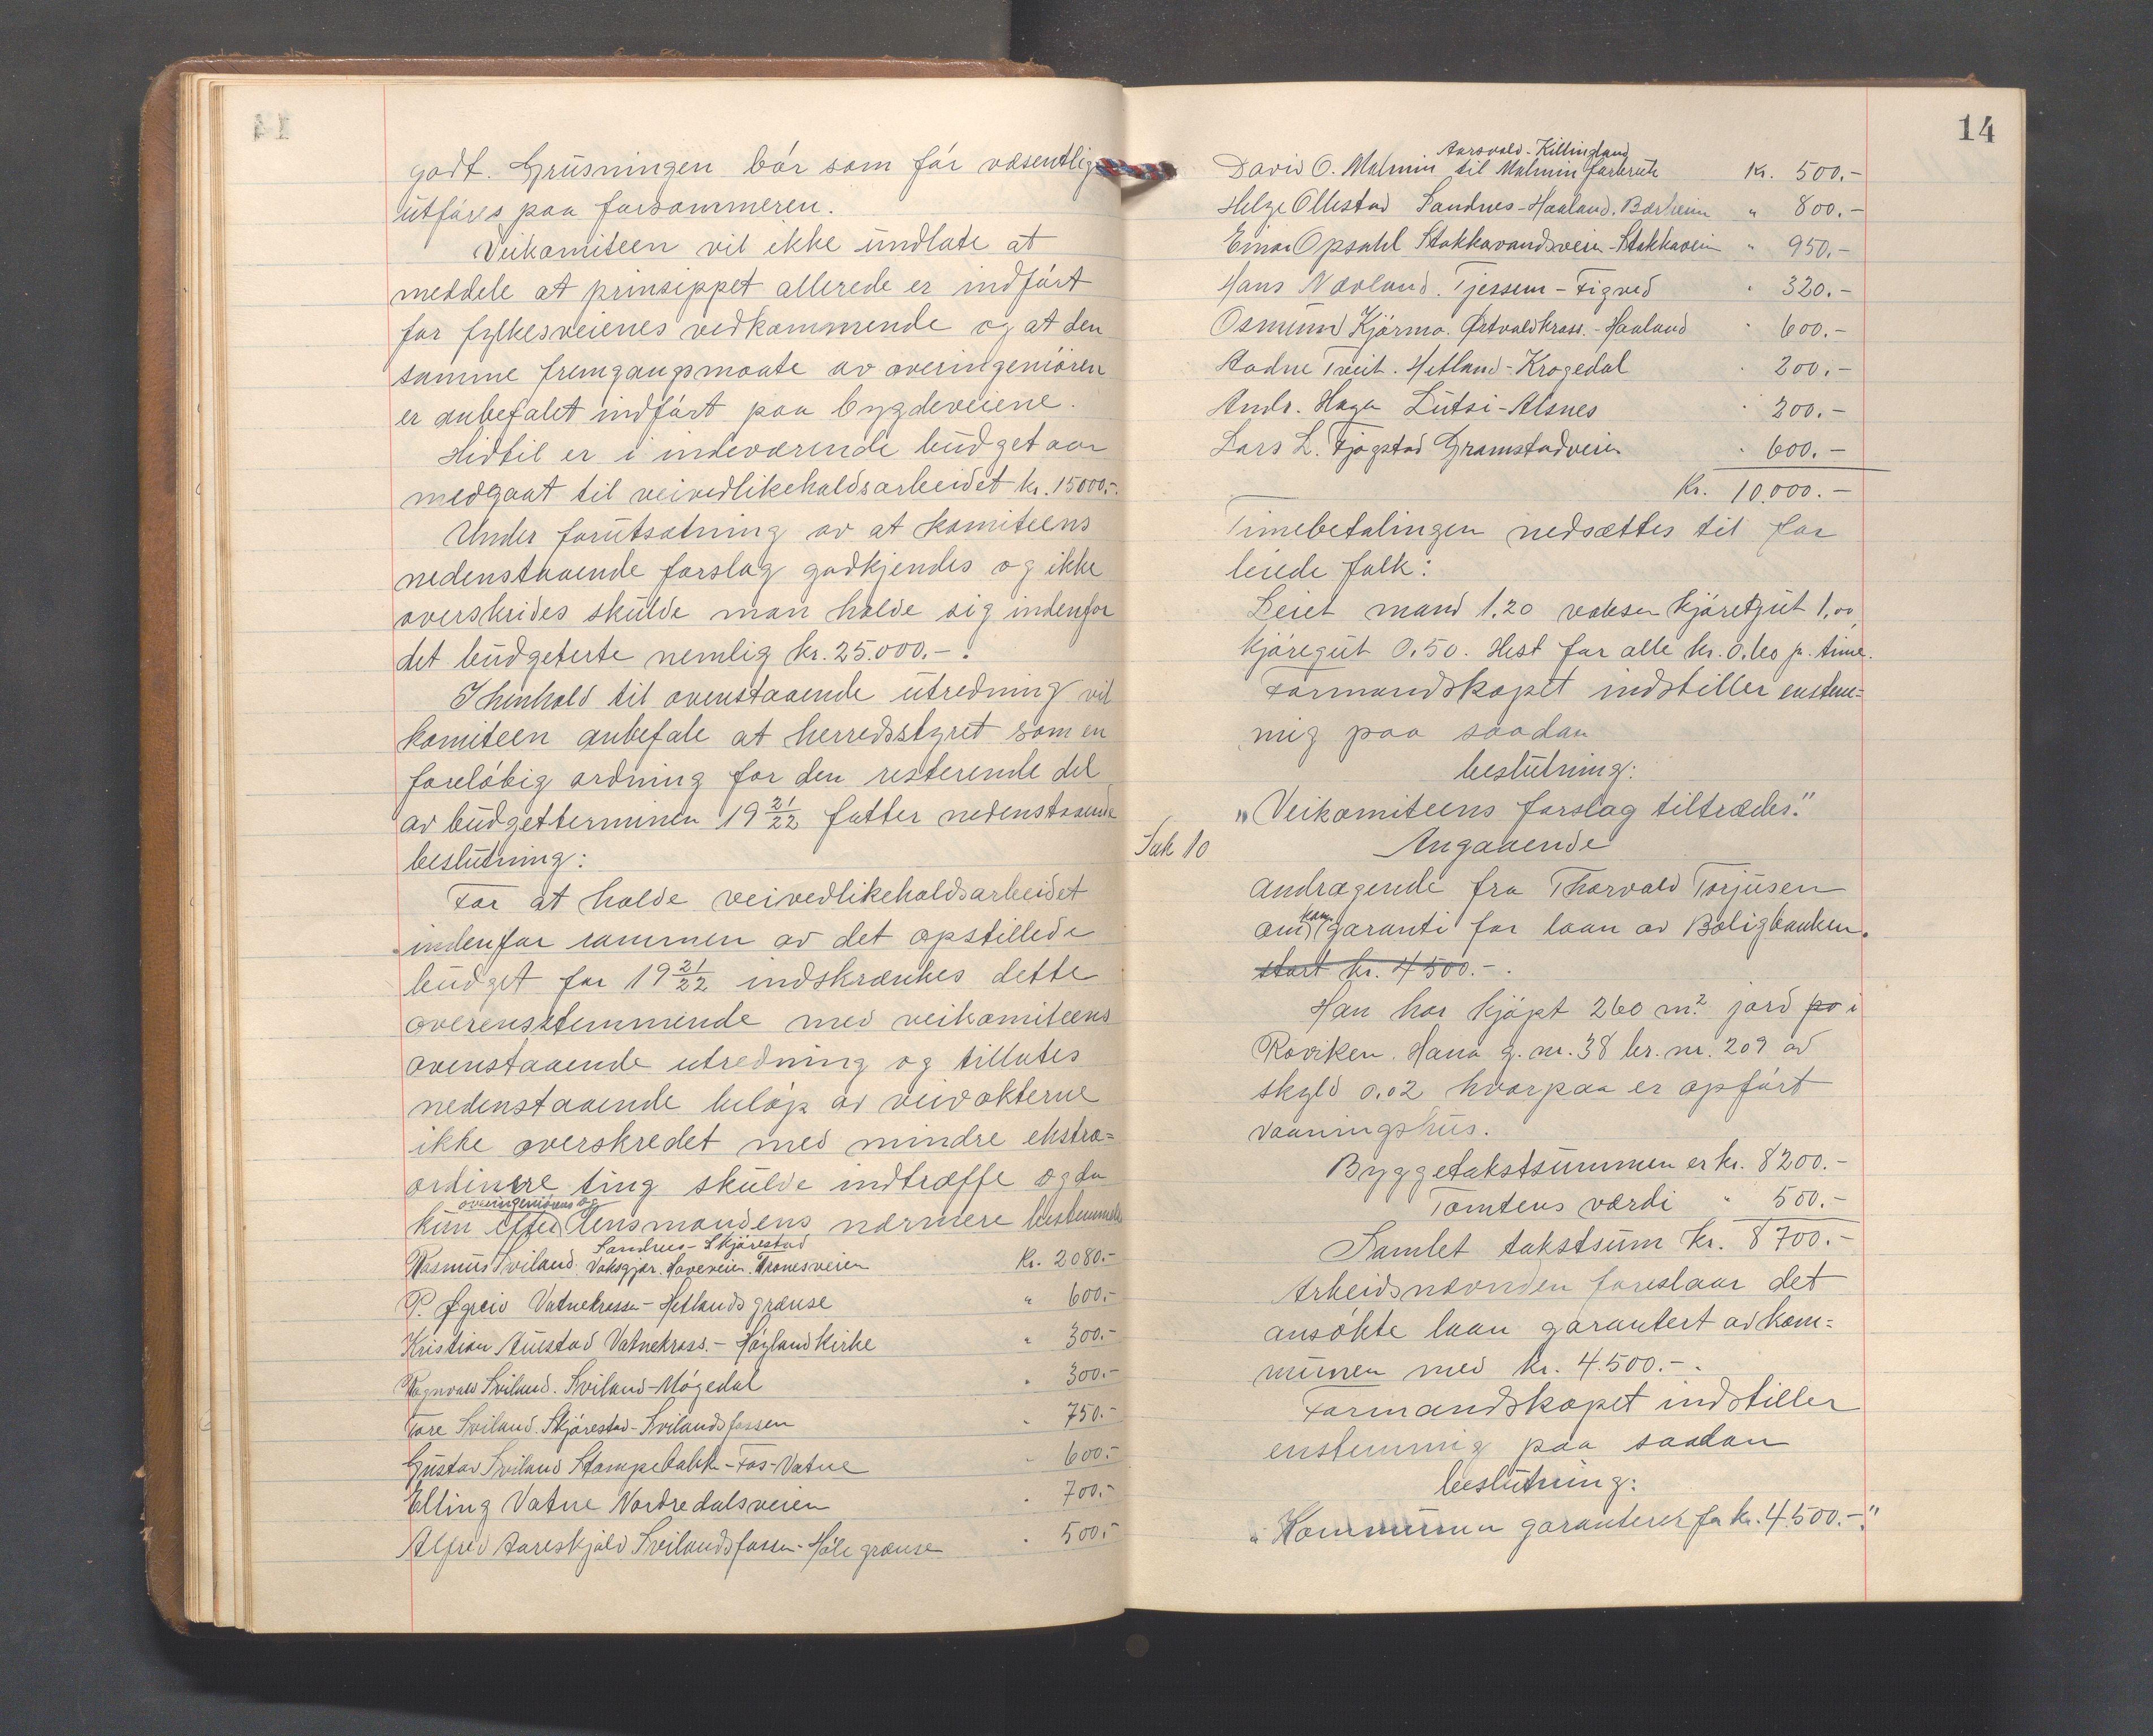 godt. Grusningen bør som før væsentlig
utføres paa forsommeren.
Veikomiteen vil ikke undlate at
meddele at prinsippet allerede er indført
for fylkesveienes vedkommende og at den
samme fremgangsmaate av overingeniøren
er anbefalet indført paa bygdeveiene.
Hidtil er i indeværende budgetaar
medgaat til veivedlikeholdsarbeidet kr. 15000,-.
Under forutsætning av at komiteens
nedenstaaende forslag godkjendes og ikke
overskrides skulde man holde sig indenfor
det budgeterte nemlig kr. 25.000.-.
I henhold til ovenstaaende utredning vil
komiteen anbefale at herredsstyret som en
foreløbig ordning for den resterende del
av budgetterminen 19 21/22 fatter nedenstaaende
beslutning:
For at holde veivedlikeholdsarbeidet
indenfor rammen av det opstillede
budget for 19 21/22 indskrænkes dette
overensstemmende med veikomiteens
ovenstaaende utredning og tillates
nedenstaaende beløp av veivokterne
ikke overskredet med mindre ekstra=
ordinære ting skulde indtræffe og da
overingeniørens og
kun efter lensmandens nærmere bestemmelse
Sandnes - Skjørestad
Rasmus Sviland. Vaksgjær. Haveveien. Tronesveien Kr. 2080.-
P. Øgreid Vatnekrossen - Hetlands grænse " 600.-
Kristian Austad Vatnekross. - Høyland Kirke " 300.-
Ragnvald Sviland. Sviland - Møgedal " 300.-
Tore Sviland. Skjørestad - Svilandsfossen " 750.-
Gustav Sviland Stampebakk - Fos - Vatne " 600.-
Elling Vatne Nordredalsveien " 700.-
Alfred Aareskjold Svilandsfossen - Høle grænse " 500.-
14
Aarsvold - Killingland
David O. Malmin til Malmin forbrute Kr. 500.-
Helge Ollestad Sandnes - Haaland. Bærheim " 800.-
Einar Opsahl Stokkavandsveien - Stokkaveien " 950.-
Hans Nævland. Tjessem - Figved " 320.-
Osmund Kjørmo. Ørtvaldkross. - Haaland " 600.-
Aadne Tveit. Hetland - Krogedal " 200.-
Andr. Haga Lutsi - Alsnes " 200.-
Lars L. Fjogstad Gramstadveien " 600.-
Kr. 10.000.-
Timebetalingen nedsættes til for
leiede folk:
Leiet mand 1.20 voksen kjøregut 1,00
kjøregut 0.50. Hest for alle kr. 0.60 p. time.
Formandskapet indstiller enstem=
mig paa saadan
beslutning:
"Veikomiteens forslag tiltrædes."
Sak 10 Angaaende
andragende fra Thorvald Torjusen
kom.
om garanti for laan av Boligbanken.
stort kr. 4500.-.
Han har kjøpt 260 m² jord pa i
Roviken. Hana g. nr. 38 br. nr. 209 av
skyld 0.02 hvorpaa er opført
vaaningshus.
Byggetakstsummen er kr. 8200.-
Tomtens værdi " 500.-
Samlet takstsum kr. 8700.-
Arbeidsnævnden foreslaar det
ansøkte laan garantert av kom=
munen med kr. 4.500.-.
Formandskapet indstiller
enstemmig paa saadan
beslutning:
"Kommunen garanterer for kr. 4500.-."